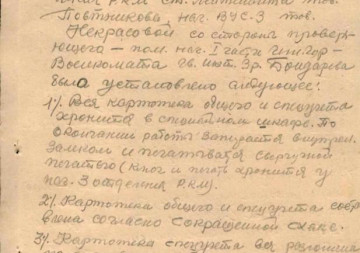 РКМ ст. лейтенанта тов.
Повтникова, нач. ВУС-3 тов.
Некрасовой со стороны проверя-
ющего – пом. нач. I части Гор-
Военкомата тов. инт. 3р. Бондарева
было установлено следующее:
1). Вся картотека общего и спецучета
хранится в специальном шкафе. По
окончании работы запирается внутрен.
замком и печатывается сургучной
печатью (ключ и печать хранится у
нач. 3 отделения РКМ).
2). Картотека общего и спецучета собр
вана согласно сокращенной схеме.
3). Картотека спецучета вся